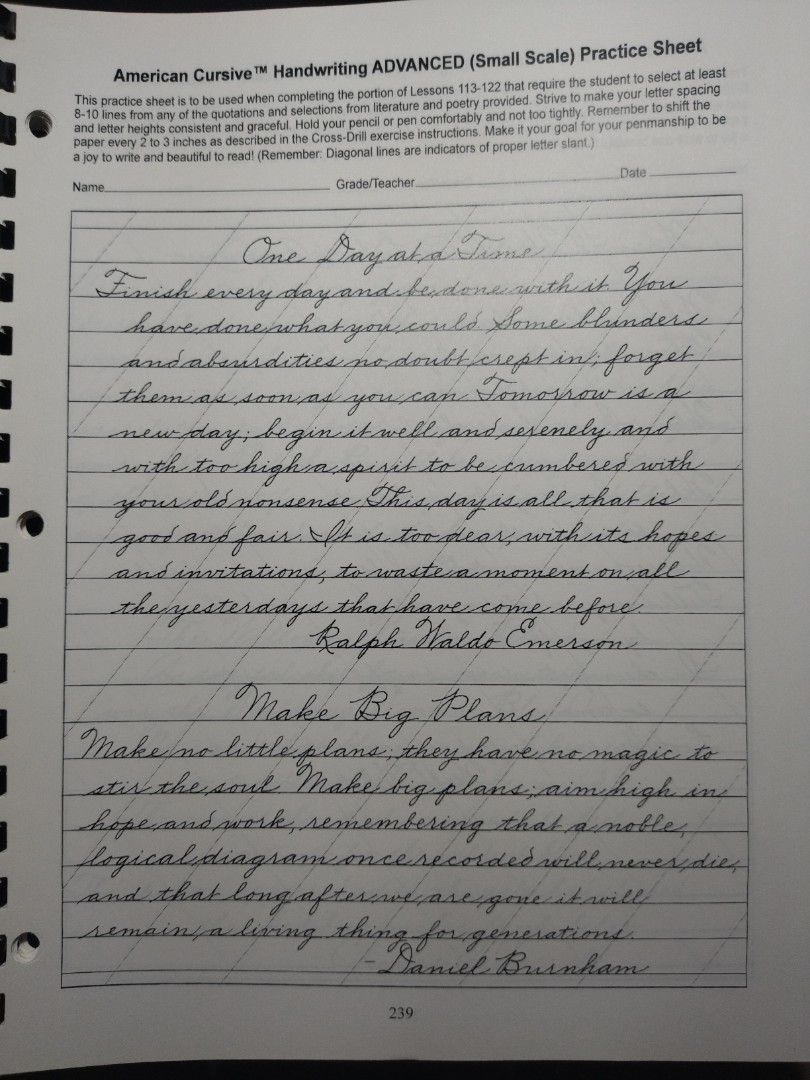 American Cursive™ Handwriting ADVANCED (Small Scale) Practice Sheet
This practice sheet is to be used when completing the portion of Lessons 113-122 that require the student to select at least
8-10 lines from any of the quotations and selections from literature and poetry provided. Strive to make your letter spacing
and letter heights consistent and graceful. Hold your pencil or pen comfortably and not too tightly. Remember to shift the
paper every 2 to 3 inches as described in the Cross-Drill exercise instructions. Make it your goal for your penmanship to be
a joy to write and beautiful to read! (Remember: Diagonal lines are indicators of proper letter slant.)
Name Grade/Teacher Date
One Day at a Time
Finish every day and be done with it. You
have done what you could. Some blunders
and absurdities no doubt crept in; forget
them as soon as you can. Tomorrow is a
new day; begin it well and serenely and
with too high a spirit to be cumbered with
your old nonsense. This day is all that is
good and fair. It is too dear, with its hopes
and invitations, to waste a moment on all
the yesterdays that have come before.
Ralph Waldo Emerson
Make Big Plans
Make no little plans; they have no magic to
stir the soul. Make big plans; aim high in
hope and work, remembering that a noble,
logical diagram once recorded will never die,
and that long after we are gone it will
remain, a living thing for generations.
- Daniel Burnham
239